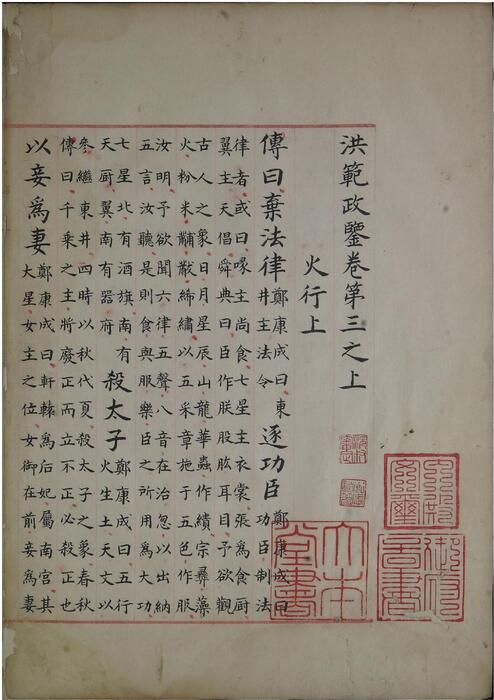 洪範政鑒卷第三之上
火行上
傳曰棄法律鄭康成曰東井主法令逐功臣鄭康成曰功臣制法
律者或曰喙主尚食七星主衣裳張為食厨
翼主天倡舜典曰臣作朕股肱耳目予欲觀
古人之象日月星辰山龍華蟲作繢宗彝藻
火粉米黼黻絺繡以五采章施于五色作服
汝明予欲聞六律五聲八音在治忽以出納
五言汝聽是則食與服樂臣之所用為大功
七星北有酒旗南有天厨翼南有器府殺太子鄭康成曰五行火生土天文以
參繼東井四時以秋代夏殺太子之象春秋
傳曰千乘之主將廢正而立不正必殺正也
以妾爲妻鄭康成曰軒轅爲后妃屬南宮其大星女主之位女御在前妾爲妻
御府圖書
大本堂書